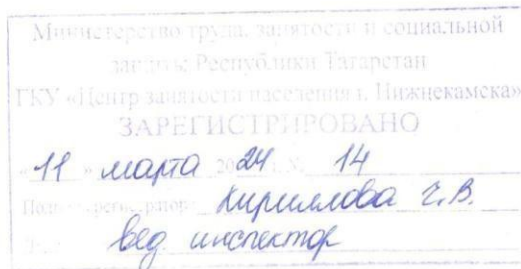 Министерство труда, занятости и социальной
защиты Республики Татарстан
ГКУ «Центр занятости населения г. Нижнекамска»
ЗАРЕГИСТРИРОВАНО
«11» марта 2024 г. № 14
Кириллова Г.В.
вед инспектор